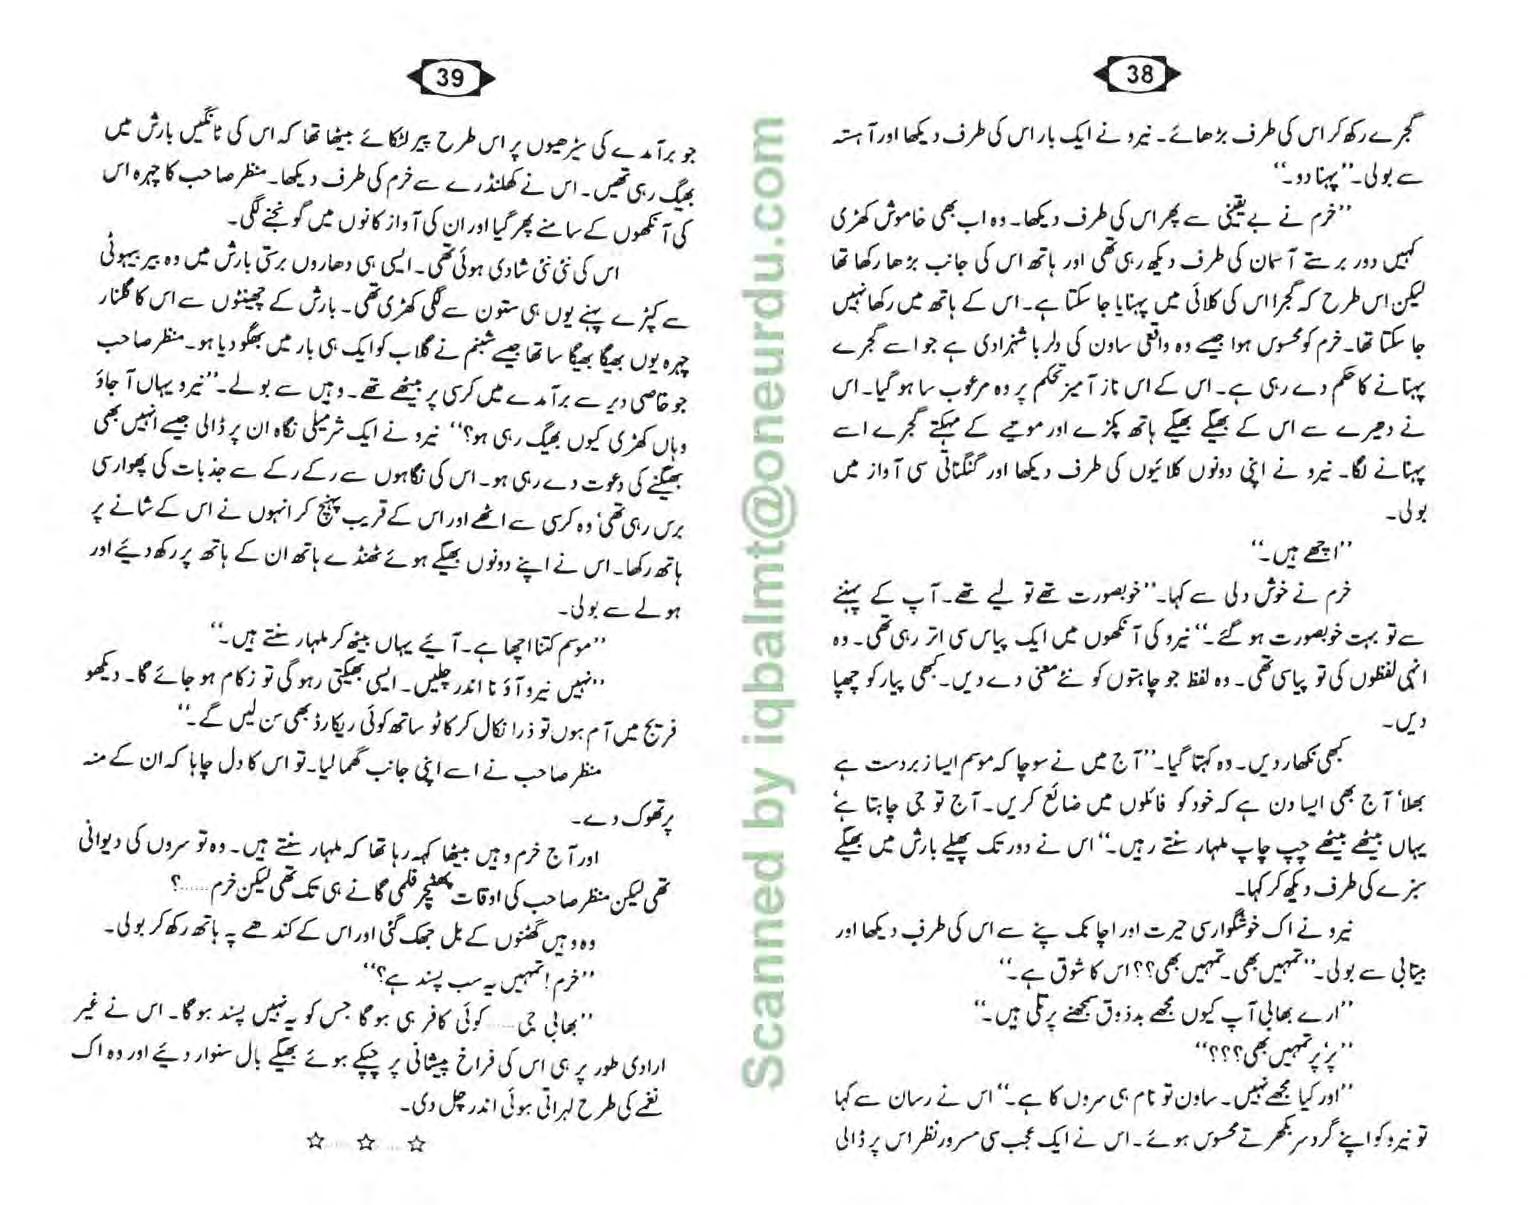 38
گجرے رکھ کر اس کی طرف بڑھائے۔ نیرو نے ایک بار اس کی طرف دیکھا اور آہستہ
سے بولی۔ ’’پہنا دو۔‘‘
’’خرم نے بے یقینی سے پھر اس کی طرف دیکھا۔ وہ اب بھی خاموش کھڑی
کہیں دور برستے آسمان کی طرف دیکھ رہی تھی اور ہاتھ اس کی جانب بڑھا رکھا تھا
لیکن اس طرح کہ گجرا اس کی کلائی میں پہنایا جا سکتا ہے۔ اس کے ہاتھ میں رکھا نہیں
جا سکتا تھا۔ خرم کو محسوس ہوا جیسے وہ واقعی ساون کی دلربا شہزادی ہے جو اسے گجرے
پہنانے کا حکم دے رہی ہے۔ اس کے اس ناز آمیز تحکم پر وہ مرعوب سا ہو گیا۔ اس
نے دھیرے سے اس کے بھیگے بھیگے ہاتھ پکڑے اور موتیے کے مہکتے گجرے اسے
پہنانے لگا۔ نیرو نے اپنی دونوں کلائیوں کی طرف دیکھا اور گنگناتی سی آواز میں
بولی۔
’’اچھے ہیں۔‘‘
خرم نے خوش دلی سے کہا۔ ’’خوبصورت تھے تو لیے تھے۔ آپ کے پہننے
سے تو بہت خوبصورت ہو گئے۔‘‘ نیرو کی آنکھوں میں ایک پیاس سی اتر رہی تھی۔ وہ
انہی لفظوں کی تو پیاسی تھی۔ وہ لفظ جو چاہتوں کو نئے معنی دے دیں۔ کبھی پیار کو چھپا
دیں۔
کبھی نکھار دیں۔ وہ کہتا گیا۔ ’’آج میں نے سوچا کہ موسم ایسا زبردست ہے
بھلا‘ آج بھی ایسا دن ہے کہ خود کو فائلوں میں ضائع کریں۔ آج تو جی چاہتا ہے‘
یہاں بیٹھے بیٹھے چپ چاپ ملہار سنتے رہیں۔‘‘ اس نے دور تک پھیلے بارش میں بھیگے
سبزے کی طرف دیکھ کر کہا۔
نیرو نے اک خوشگوار سی حیرت اور اچانک پنے سے اس کی طرف دیکھا اور
بیتابی سے بولی۔ ’’تمہیں بھی۔ تمہیں بھی؟؟ اس کا شوق ہے۔‘‘
’’ارے بھابی آپ کیوں مجھے بدذوق سمجھنے پر تلی ہیں۔‘‘
’’پر‘ پر تمہیں بھی؟؟؟؟‘‘
’’اور کیا مجھے نہیں۔ ساون تو نام ہی سروں کا ہے۔‘‘ اس نے رسان سے کہا
تو نیرو کو اپنے گرد سر بکھرتے محسوس ہوئے۔ اس نے ایک عجب سی مسرور نظر اس پر ڈالی
39
جو برآمدے کی سیڑھیوں پر اس طرح پیر لٹکائے بیٹھا تھا کہ اس کی ٹانگیں بارش میں
بھیگ رہی تھیں۔ اس نے کھلنڈرے سے خرم کی طرف دیکھا۔ منظر صاحب کا چہرہ اس
کی آنکھوں کے سامنے پھر گیا اور ان کی آواز کانوں میں گونجنے لگی۔
اس کی نئی نئی شادی ہوئی تھی۔ ایسی ہی دھاروں برستی بارش میں وہ بیر بہوٹی
سے کپڑے پہنے یوں ہی ستون سے لگی کھڑی تھی۔ بارش کے چھینٹوں سے اس کا گلنار
چہرہ یوں بھیگا بھیگا سا تھا جیسے شبنم نے گلاب کو ایک ہی بار میں بھگو دیا ہو۔ منظر صاحب
جو خاصی دیر سے برآمدے میں کرسی پر بیٹھے تھے۔ وہیں سے بولے۔ ’’نیرو یہاں آ جاؤ
وہاں کھڑی کیوں بھیگ رہی ہو؟‘‘ نیرو نے ایک شرمیلی نگاہ ان پر ڈالی جیسے انہیں بھی
بھیگنے کی دعوت دے رہی ہو۔ اس کی نگاہوں سے رکے رکے سے جذبات کی پھوار سی
برس رہی تھی‘ وہ کرسی سے اٹھے اور اس کے قریب پہنچ کر انہوں نے اس کے شانے پر
ہاتھ رکھا۔ اس نے اپنے دونوں بھیگے ہوئے ٹھنڈے ہاتھ ان کے ہاتھ پر رکھ دیئے اور
ہولے سے بولی۔
’’موسم کتنا اچھا ہے۔ آیئے یہاں بیٹھ کر ملہار سنتے ہیں۔‘‘
’’نہیں نیرو آؤ نا اندر چلیں۔ ایسی بھیگتی رہو گی تو زکام ہو جائے گا۔ دیکھو
فریج میں آم ہوں تو ذرا نکال کر کاٹو ساتھ کوئی ریکارڈ بھی سن لیں گے۔‘‘
منظر صاحب نے اسے اپنی جانب گھما لیا۔ تو اس کا دل چاہا کہ ان کے منہ
پر تھوک دے۔
اور آج خرم وہیں بیٹھا کہہ رہا تھا کہ ملہار سنتے ہیں۔ وہ تو سروں کی دیوانی
تھی لیکن منظر صاحب کی اوقات پھٹیچر فلمی گانے ہی تک تھی لیکن خرم ......؟
وہ وہیں گھٹنوں کے بل جھک گئی اور اس کے کندھے پہ ہاتھ رکھ کر بولی۔
’’خرم! تمہیں یہ سب پسند ہے؟‘‘
’’بھابی جی ...... کوئی کافر ہی ہو گا جس کو یہ نہیں پسند ہو گا۔ اس نے غیر
ارادی طور پر ہی اس کی فراخ پیشانی پر چپکے ہوئے بھیگے بال سنوار دیئے اور وہ اک
نغمے کی طرح لہراتی ہوئی اندر چل دی۔
☆ ..... ☆ ..... ☆
Scanned by iqbalmt@oneurdu.com